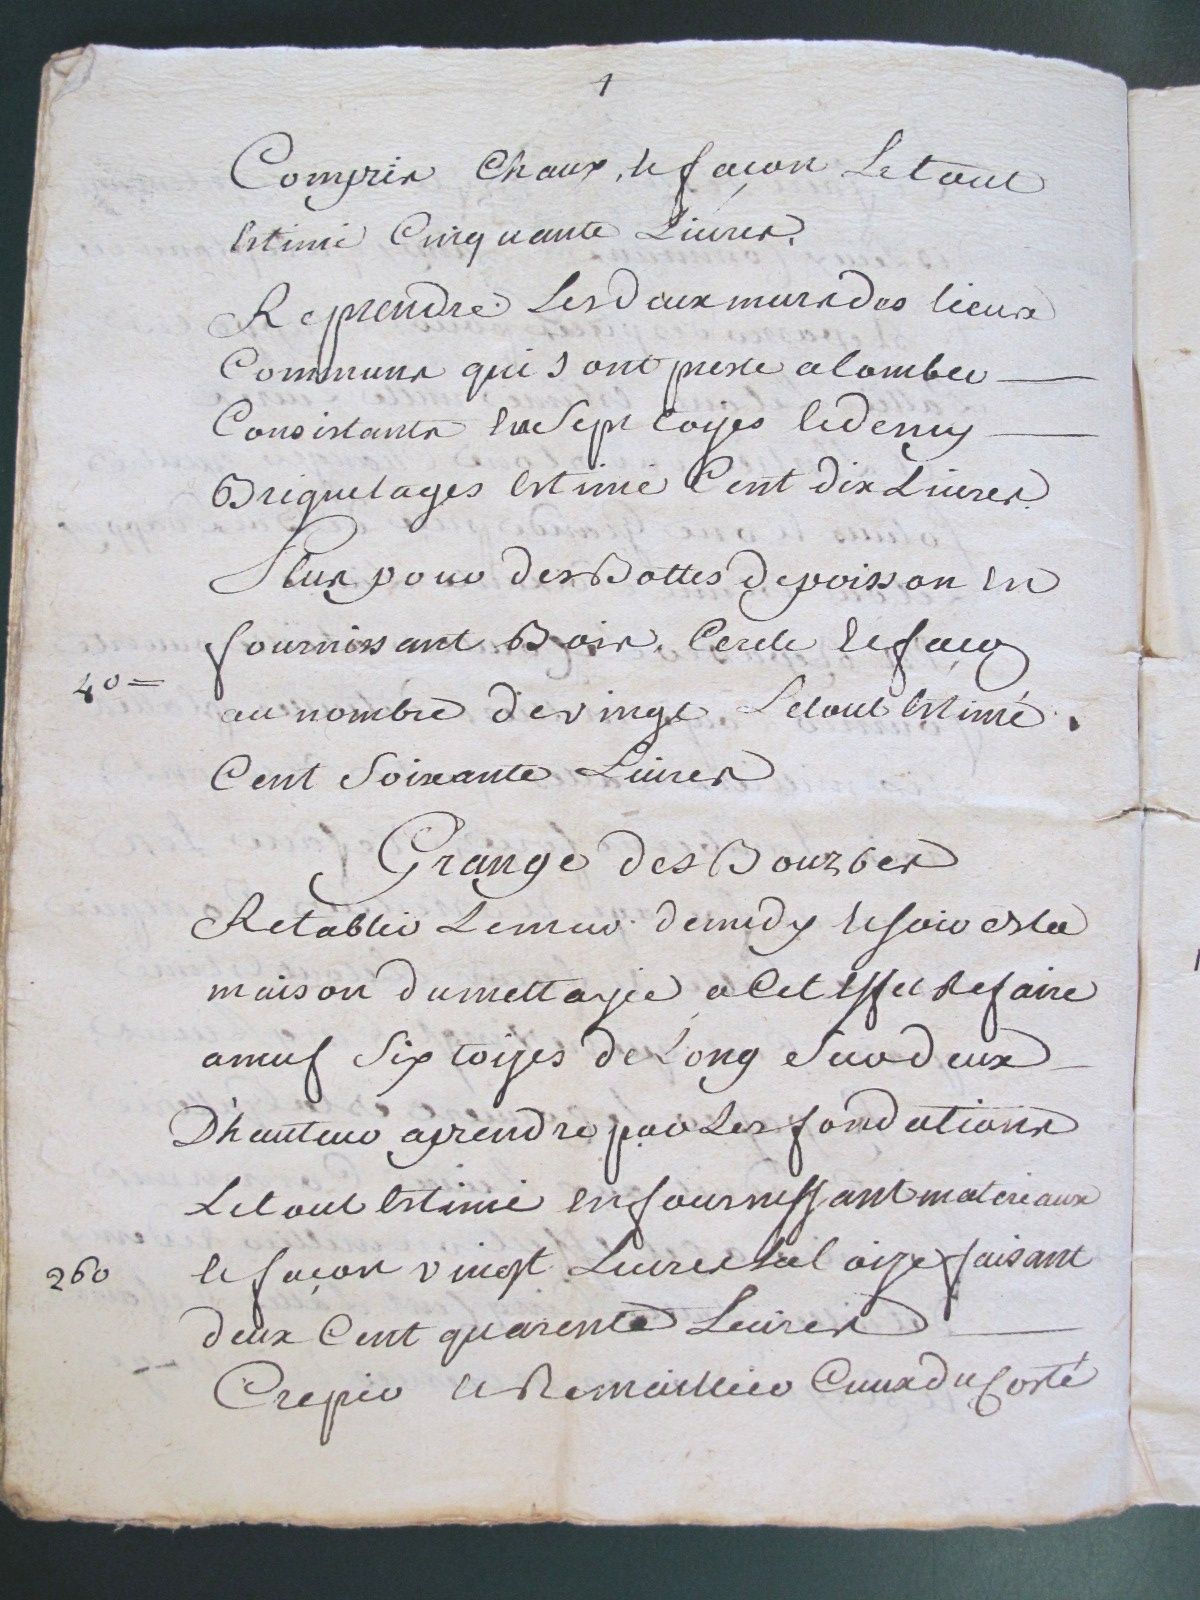 1
Compris Chaux, & façon Le tout
Estimé Cinquante Livres.
Reprendre Les deux murs des lieux
Communs qui sont preste a tomber
Consistants En Sept toyes & demy
Briquetages Estimé Cent dix Livres.
Plus pour des Bottes de poisson En
fournissant Bois, Cercle & faço
40=
au nombre de vingt Le tout Estimé.
Cent Soixante Livres
Grange des
Retablir Le mur de midy & soir de la
maison du mettayée a Cet Effet Refaire
a neuf Six toises de Long Sur deux
D'hauteur a prendre par Les fondations
Le tout Estimé En fournissant materiaux
260
& façon vingt Livres La toize faisant
deux Cent quarente Livres
Crepir & Remaillier Ceux du Costé